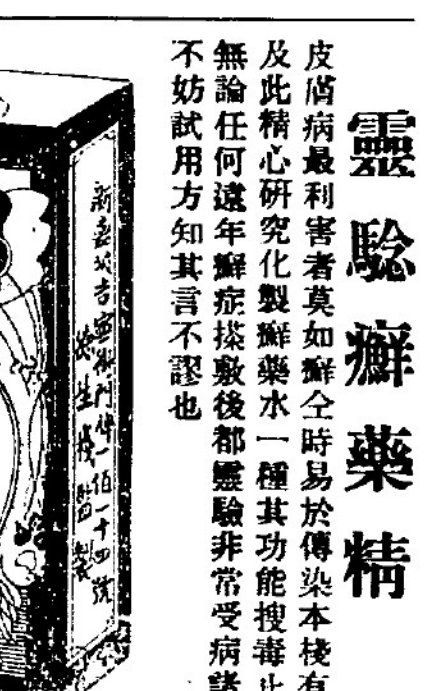 靈騐癬藥精
皮膚病最利害者莫如癬仝時易於傳染本棧有
及此精心研究化製癬藥水一種其功能搜毒止
無論任何遠年癬症搽敷後都靈驗非常受病諸
不妨試用方知其言不謬也
新嘉坡吉寧街門牌一佰一十四號
生棧監製